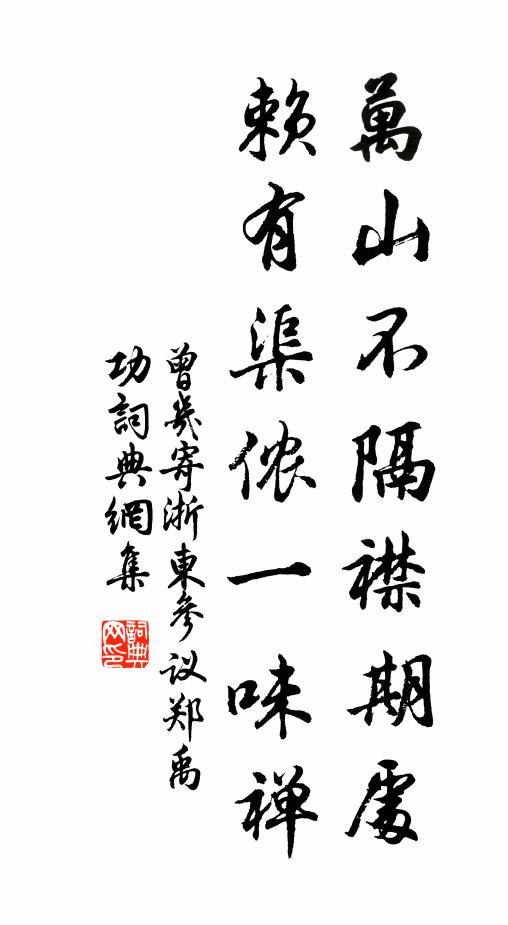 萬山不隔襟期處
賴有渠侬一味禅
曾幾寄浙東參议郑禹
功詞典網集
詞典网印